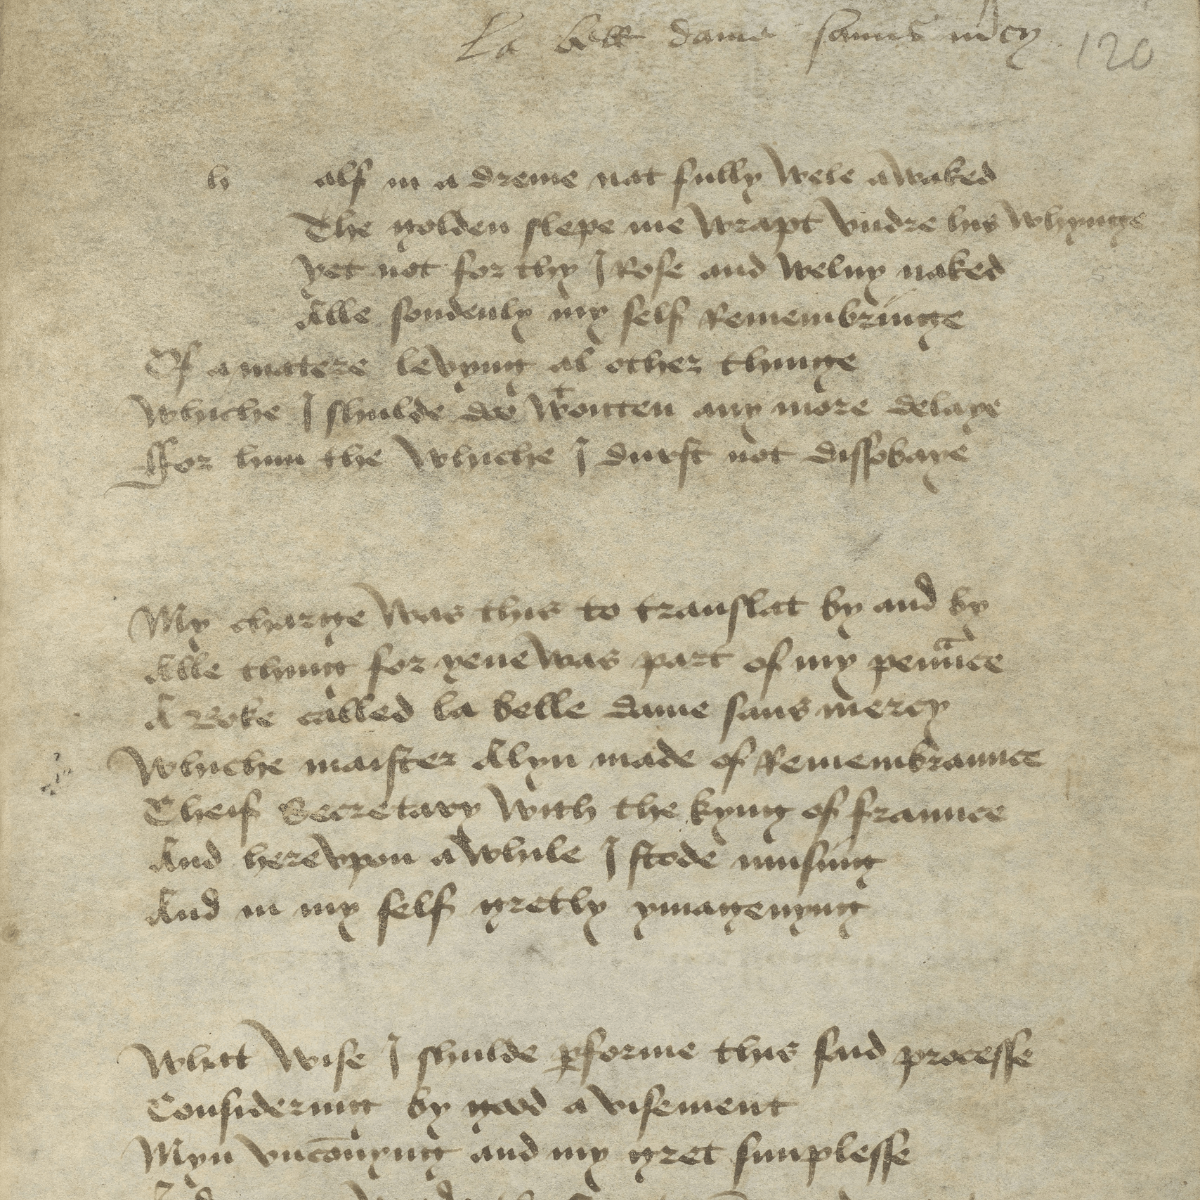 La belle dame sauns mercy 120
h alf in a dreme nat fully wele awaked
The golden slepe me wrapt vndre his whynge
yet not for thy I Rose and welny naked
Alle sondenly my self Remembringe
Of a matere levyng al other thinge
Whiche I shulde doo wtouten any more delaye
ffor him the whiche I durst not dissobaye
My charge was this to translat by and by
Alle thing for yeue was part of my pennace
A Boke called la belle dame sans mercy
Whiche maister Alyn made of Remembraunce
Cheif Secretary with the kyng of fraunce
And herevpon a while I stode musing
And in my self gretly ymagenyng
Whatt wise I shulde ꝑforme this said processe
Considering by good avisement
Myn vnconnyng and my gret simplesse